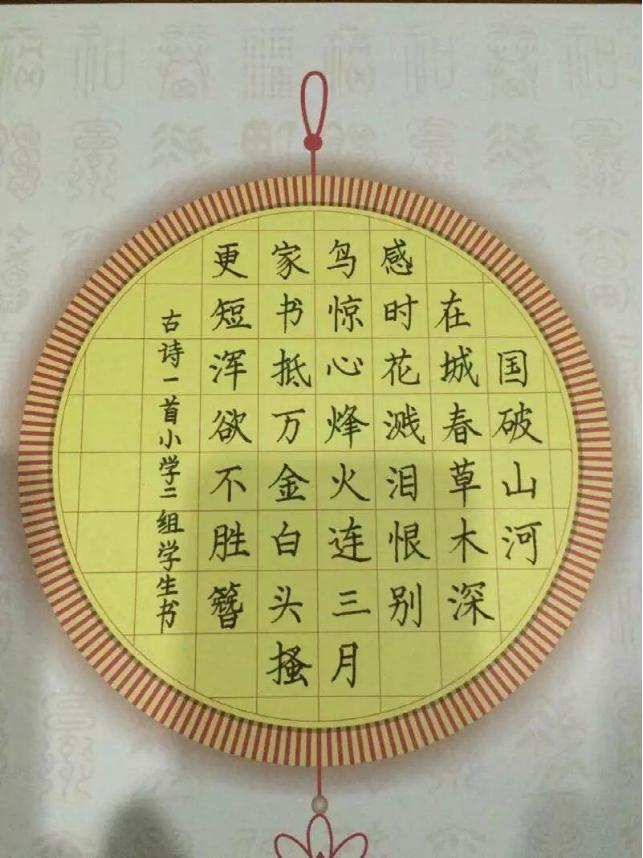 国破山河
在城春草木深
感时花溅泪恨别
鸟惊心烽火连三月
家书抵万金白头搔
更短浑欲不胜簪
古诗一首小学二组学生书